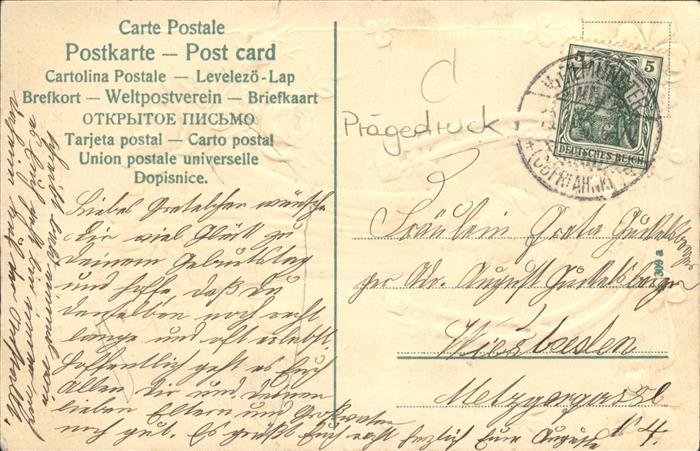 Carte Postale
Postkarte — Post card
Cartolina Postale — Levelező-Lap
Brefkort — Weltpostverein — Briefkaart
ОТКРЫТОЕ ПИСЬМО
Tarjeta postal — Carto postal
Union postale universelle
Dopisnice.
Liebes Gretelchen wünsche
Dir viel Glück zu
deinem Geburtstag
und hoffe daß du
denselben noch recht
lange und oft erlebst.
Hoffentlich geht es Euch
Allen Dir und deinen
lieben Eltern und Großvater
noch gut. Es grüßt Euch recht herzlich Eure Auguste
C
Prägedruck
5 5
DEUTSCHES REICH
Fräulein Greta Guckelsberger
per Adr. August Guckelsberger
Wiesbaden
Metzgergasse
No 4.
309 a